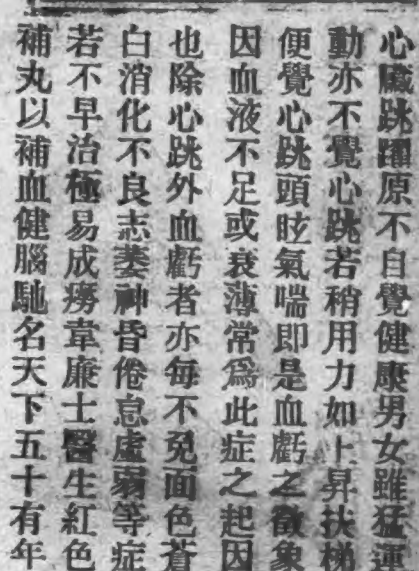 心臟跳躍原不自覺健康男女雖猛運
動亦不覺心跳若稍用力如上昇扶梯
便覺心跳頭眩氣喘即是血虧之徵象
因血液不足或衰薄常爲此症之起因
也除心跳外血虧者亦每不免面色蒼
白消化不良志萎神昏倦怠虛弱等症
若不早治極易成癆韋廉士醫生紅色
補丸以補血健腦馳名天下五十有年